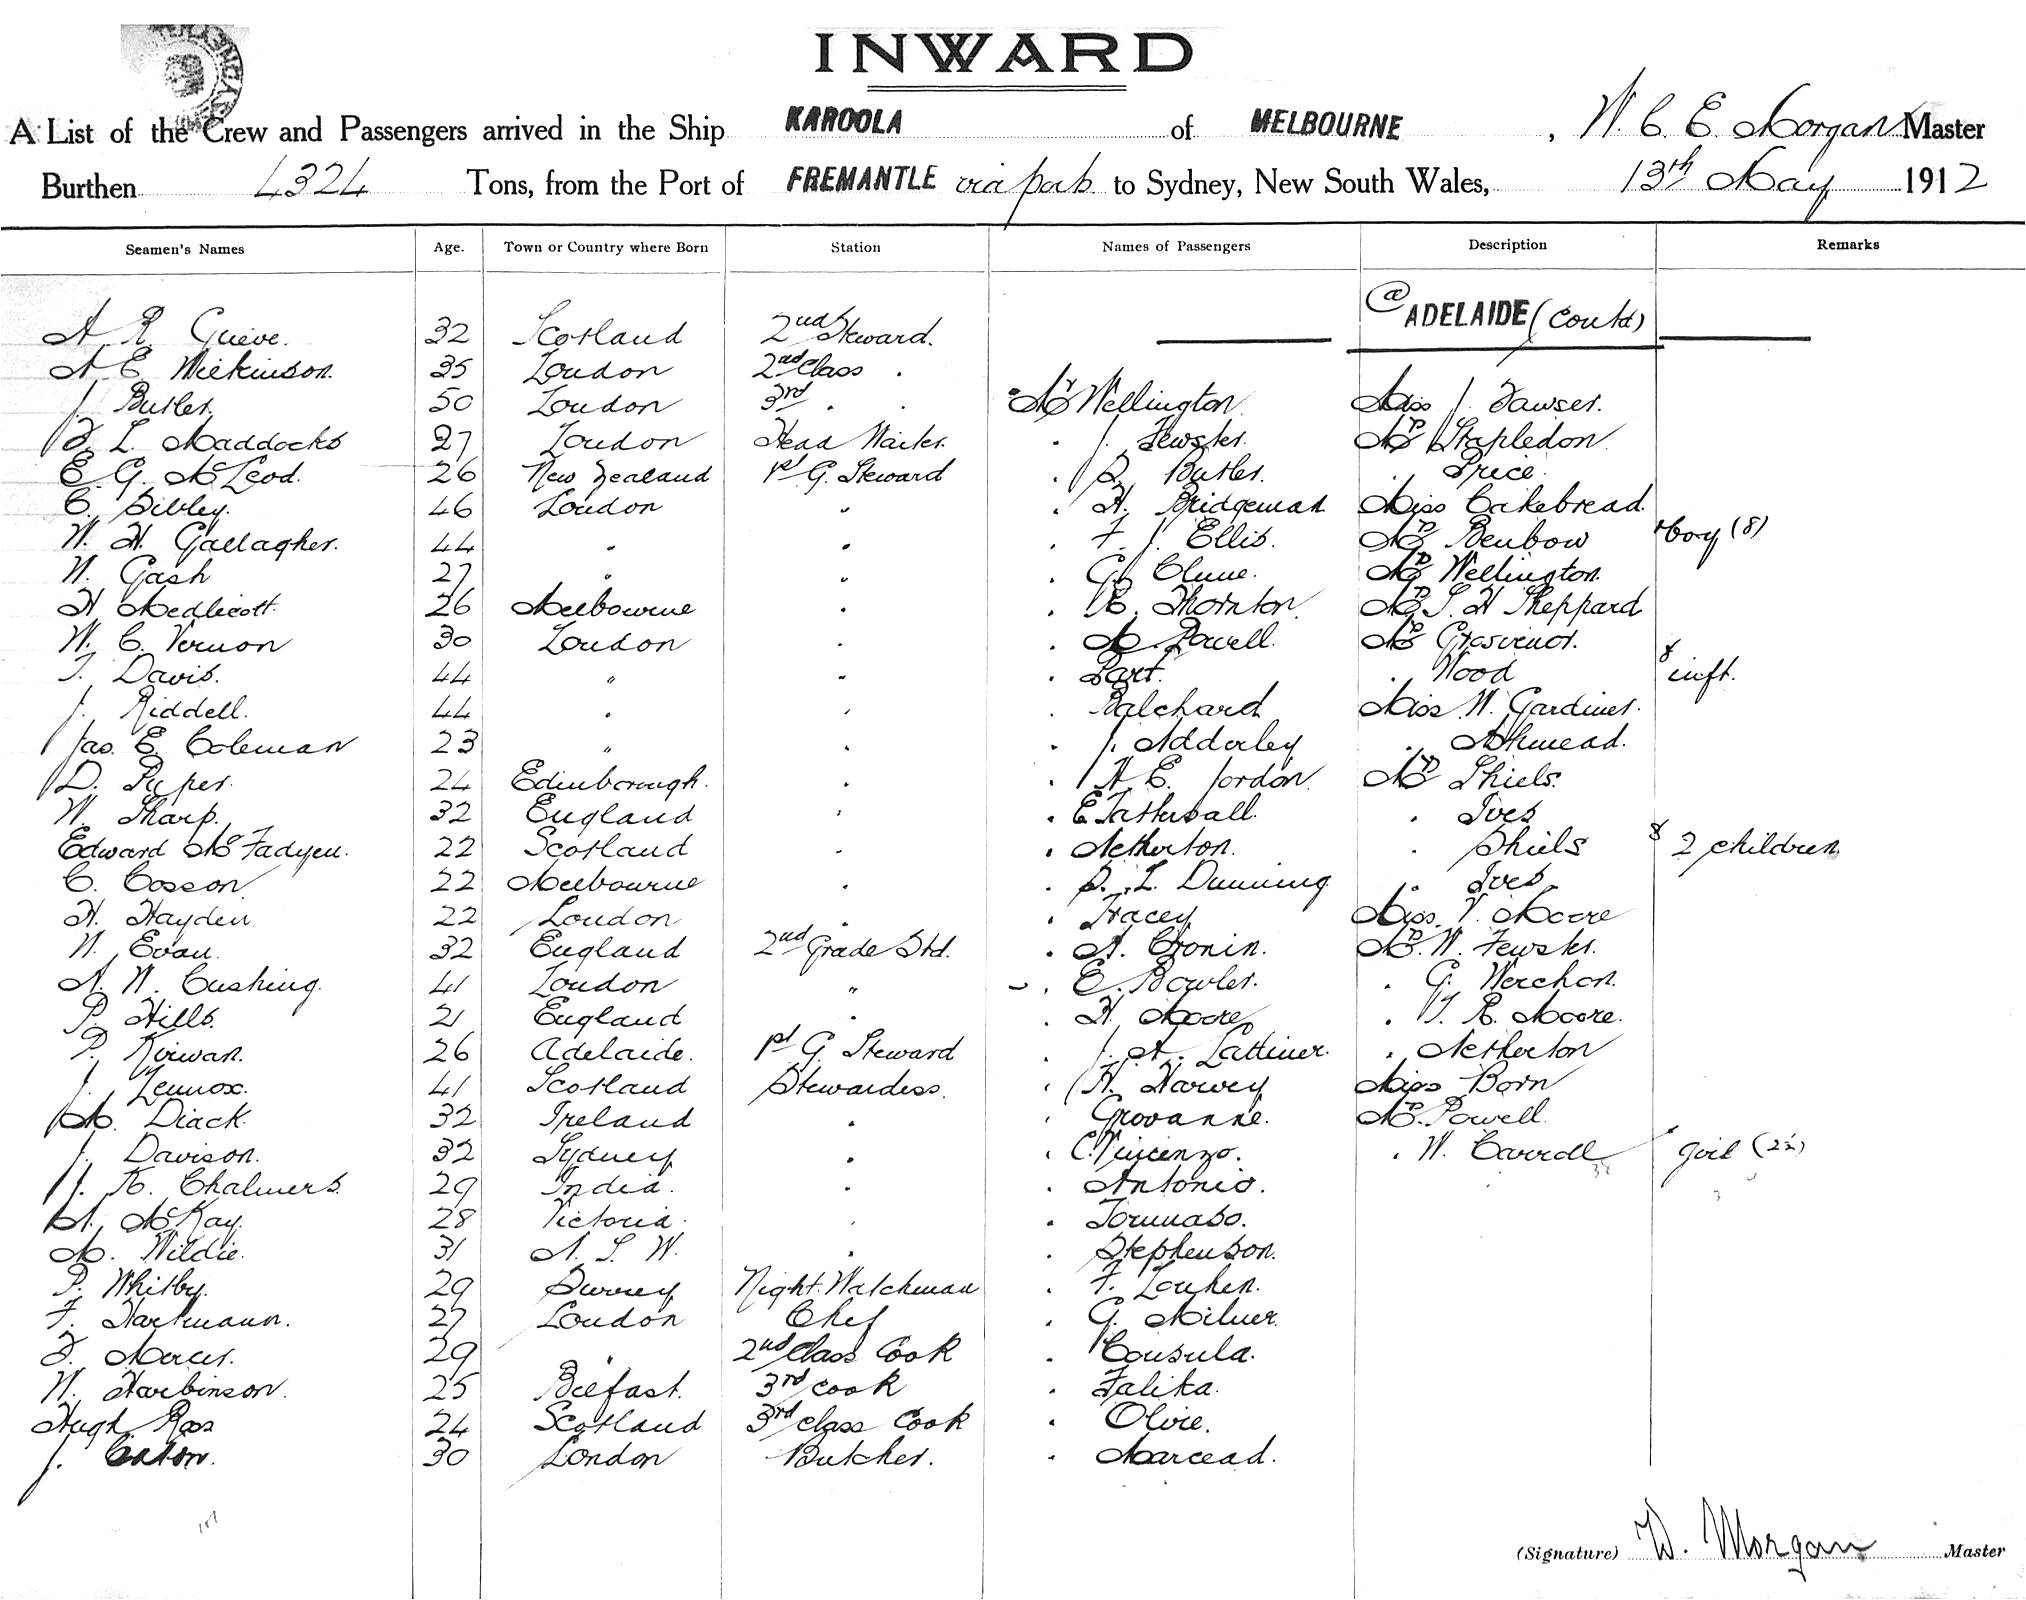 INWARD
A List of the Crew and Passengers arrived in the Ship KAROOLA of MELBOURNE, W. C. E. Morgan Master
Burthen 4324 Tons, from the Port of FREMANTLE via ports to Sydney, New South Wales, 13th May 1912
Seamen's Names Age. Town or Country where Born Station Names of Passengers Description Remarks
@ ADELAIDE (contd)
A R Grieve. 32 Scotland 2nd Steward.
A E Wilkinson. 35 London 2nd Class .
J. Butler. 50 London 3rd . . Mr Wellington Miss J. Fawser.
F. L. Maddocks 27 London Head Waiter. . J. Fewster. Mrs Stapledon
E. G. McLeod. 26 New Zealand 1st G. Steward . S. Butler. . Price.
C. Sibley. 46 London " . H. Bridgeman Miss Cakebread.
W. H. Gallagher. 44 " " . F. J. Ellis. Mrs Benbow & boy (8)
W. Gash 27 " " . G. Clune. Mrs Wellington.
H. Medlicott. 26 Melbourne . . R. Thornton Mrs S. H Sheppard
W. C. Vernon 30 London . . M. Powell. Mrs Grosvenor.
T. Davis. 44 " " . Part. . Wood & inft.
J. Riddell. 44 . . . Balchard Miss W. Gardiner.
Jas. E. Coleman 23 " . . J. Adderley . Ashmead.
D. Piper. 24 Edinborough. . . H. E. Jordon Mrs Shiels.
W. Sharp. 32 England . . E Tattersall. . Ives
Edward McFadyen. 22 Scotland . . Netherton. . Shiels & 2 children
C. Cosson 22 Melbourne . . S. L. Dunning . Ives.
H. Hayden 22 London . . Tracey Miss. V. Moore
W. Evan. 32 England 2nd Grade Std. . A. Cronin. Mr. W. Fewster.
A. W. Cushing. 41 London " . E. Bowler. . G. Werchon.
P. Hills. 21 England . . H. Moore . T. R. Moore.
P. Kirwan. 26 Adelaide. 1st G. Steward . J. A. Lattimer. . Netherton
J. Lennox. 41 Scotland Stewardess. . H. Harvey Miss Born
M. Diack. 32 Ireland . . Grovanne. Mr. Powell.
J. Davison. 32 Sydney . . C. Vincenzo. . W. Carroll & girl (2½)
J. K. Chalmers. 29 India. . . Antonio.
A. McKay. 28 Victoria. . . Tommaso.
M. Wildie. 31 N. S. W. . . Stephenson.
P. Whitby. 29 Surrey Night Watchman . F. Louhen.
F. Hartmann. 27 London Chef . G. Milner.
F. Mercer. 29 " 2nd Class Cook . Consula.
W. Harbinson. 25 Belfast. 3rd Cook . Falika.
Hugh Ross 24 Scotland 3rd Class Cook . Olive.
J. Eaton. 30 London Butcher. . Marcead.
(Signature) W. Morgan Master